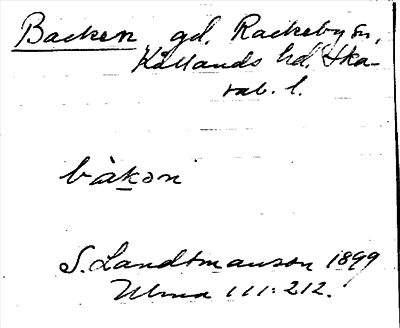 Backen gd. Rackeby sn,
Kållands hd. Ska-
rab. l.
bàkən
S. Landtmanson 1899
Ulma 111:212.